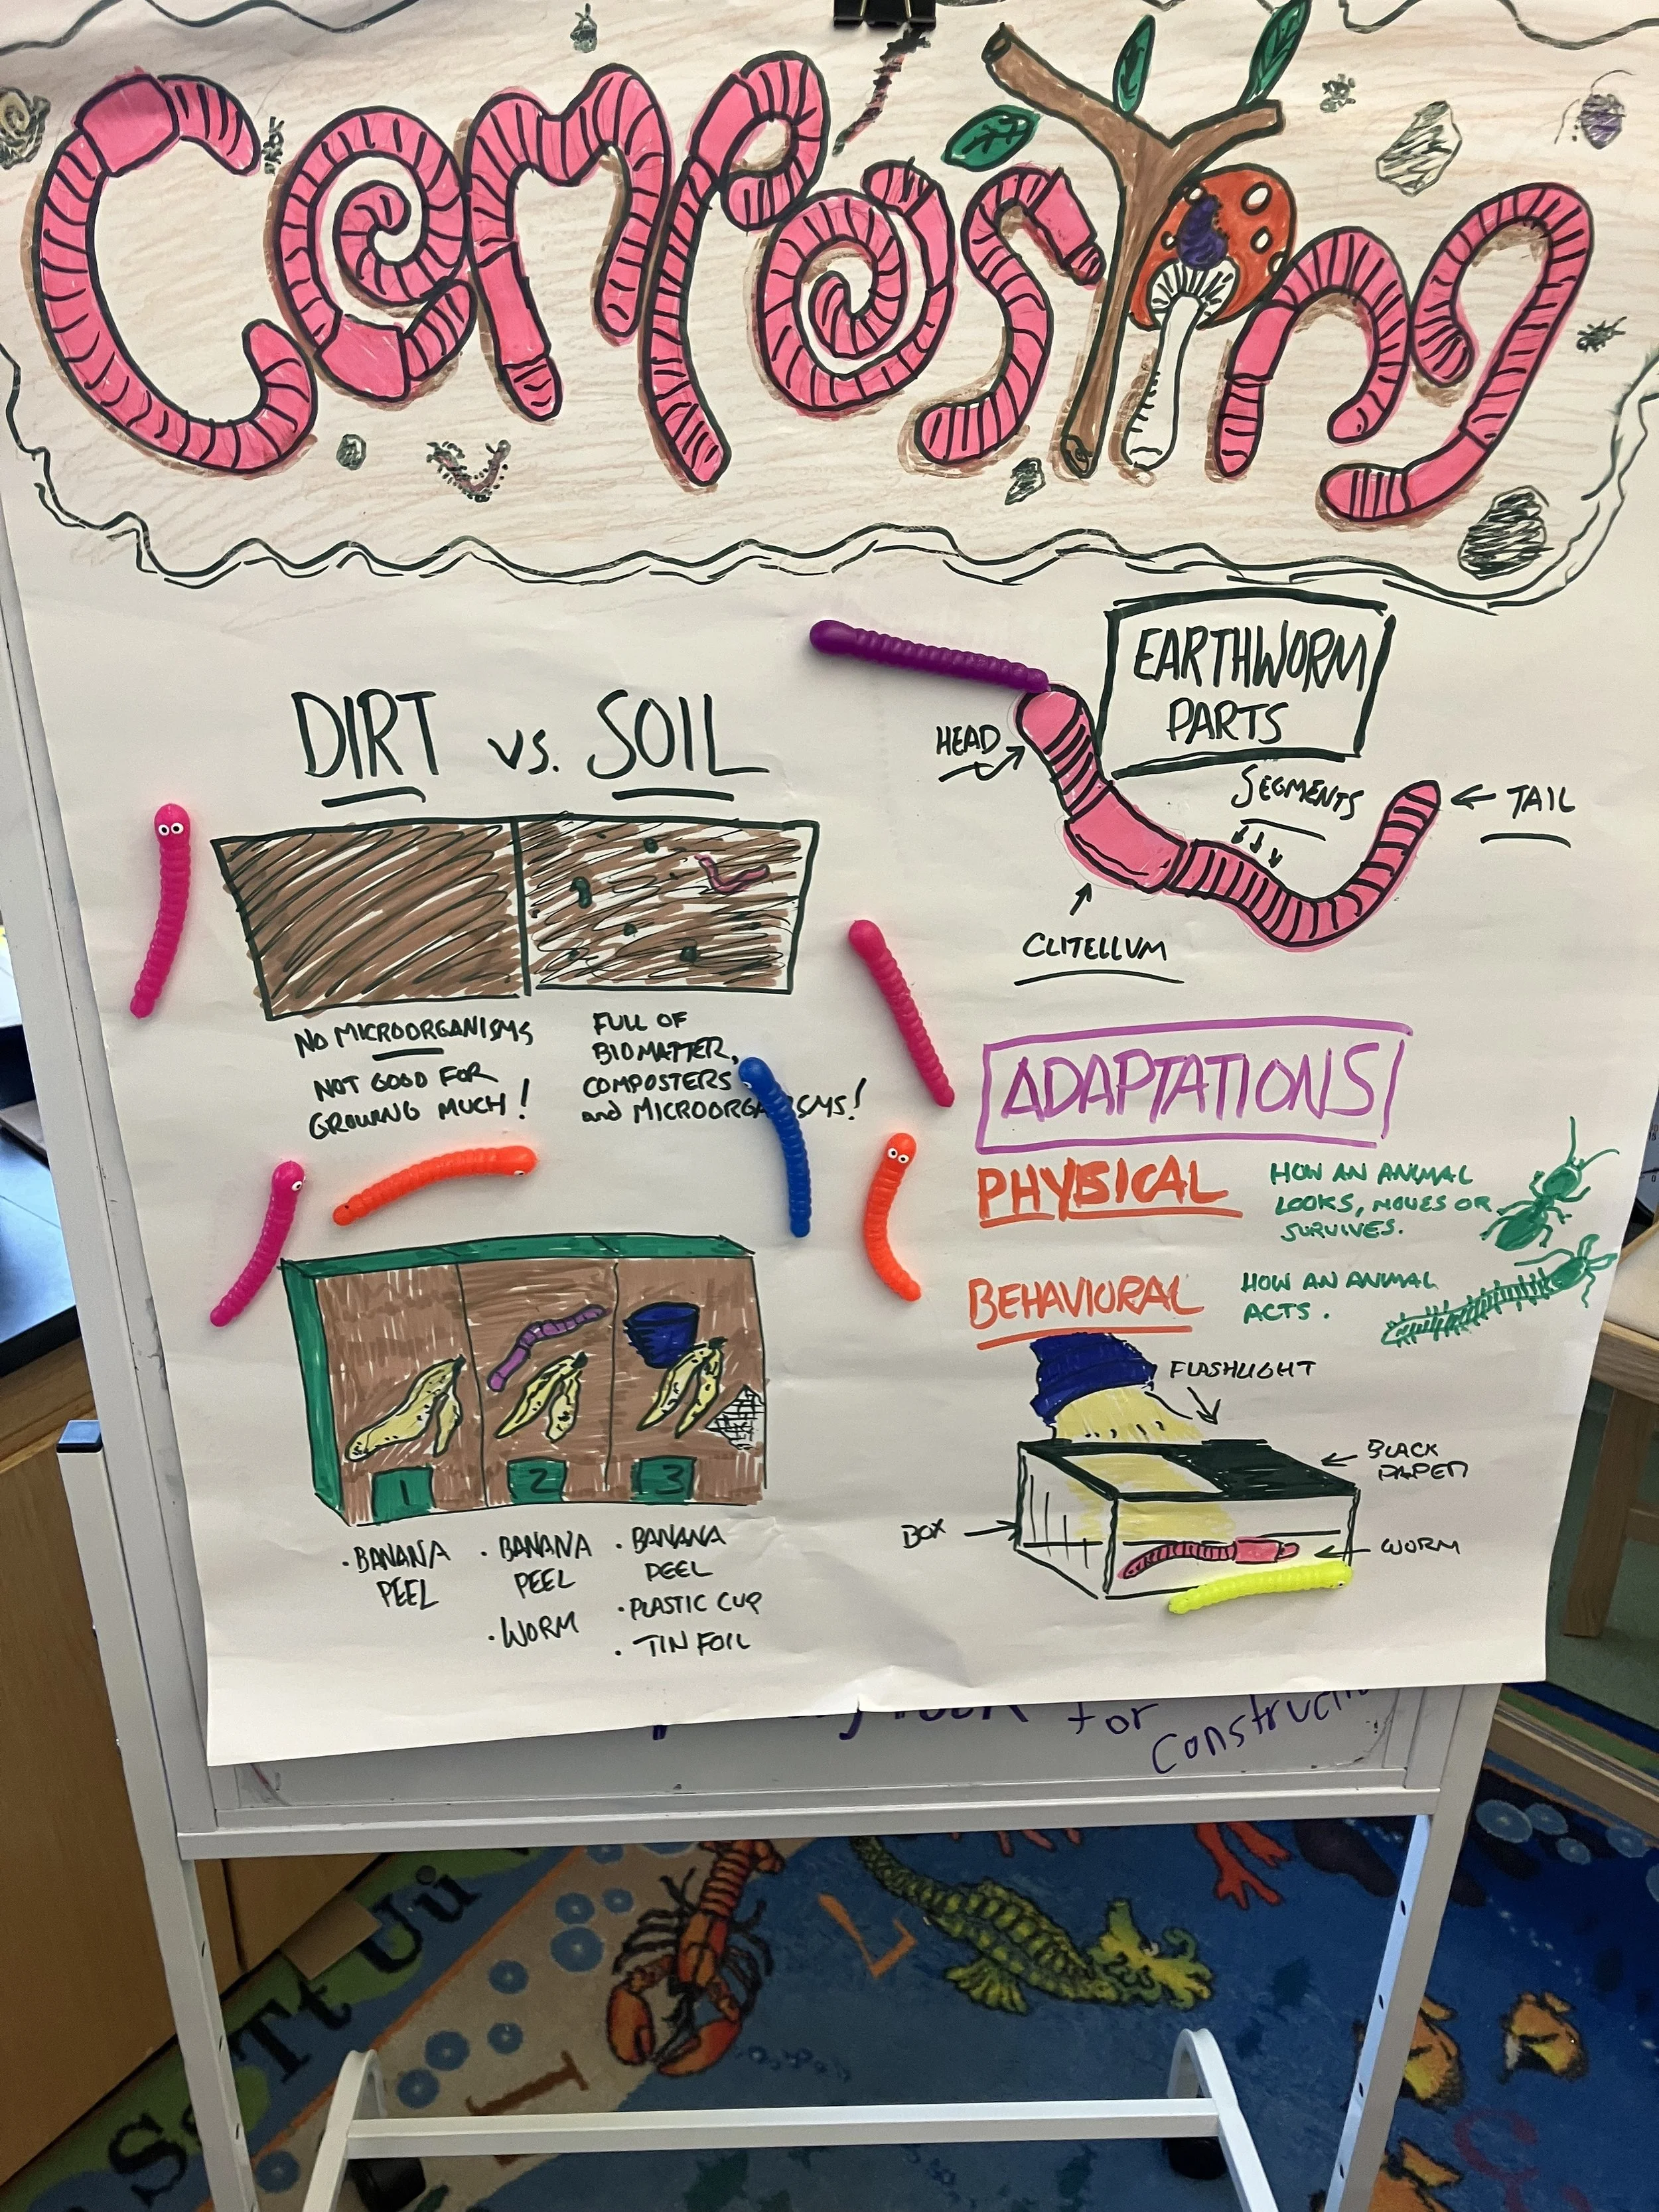 COMPOSTING
DIRT vs. SOIL
NO MICROORGANISMS
NOT GOOD FOR
GROWING MUCH!
FULL OF
BIOMATTER,
COMPOSTERS
and MICROORGANISMS!
1 2 3
• BANANA
PEEL
• BANANA
PEEL
• WORM
• BANANA
PEEL
• PLASTIC CUP
• TIN FOIL
EARTHWORM
PARTS
HEAD
SEGMENTS
TAIL
CLITELLUM
ADAPTATIONS
PHYSICAL
HOW AN ANIMAL
LOOKS, MOVES OR
SURVIVES.
BEHAVIORAL
HOW AN ANIMAL
ACTS.
FLASHLIGHT
BLACK
PAPER
BOX
WORM
for
Ss Tt Uu